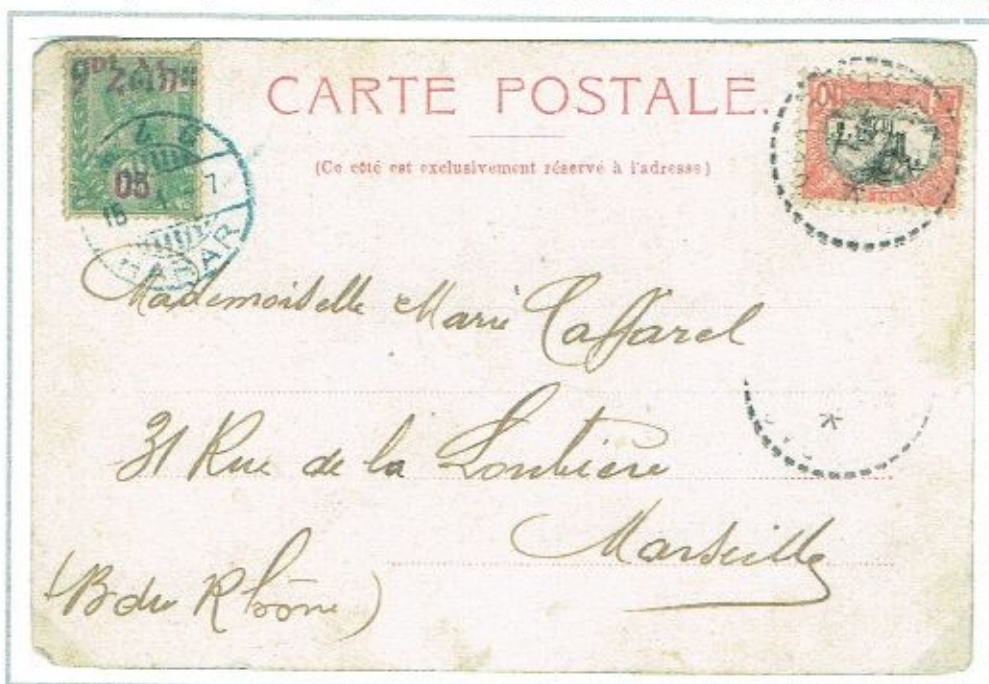 CARTE POSTALE.
(Ce côté est exclusivement réservé à l'adresse)
05
HARAR
Mademoiselle Marie Caffarel
31 Rue de la Loubière
Marseille
(B du Rhône)